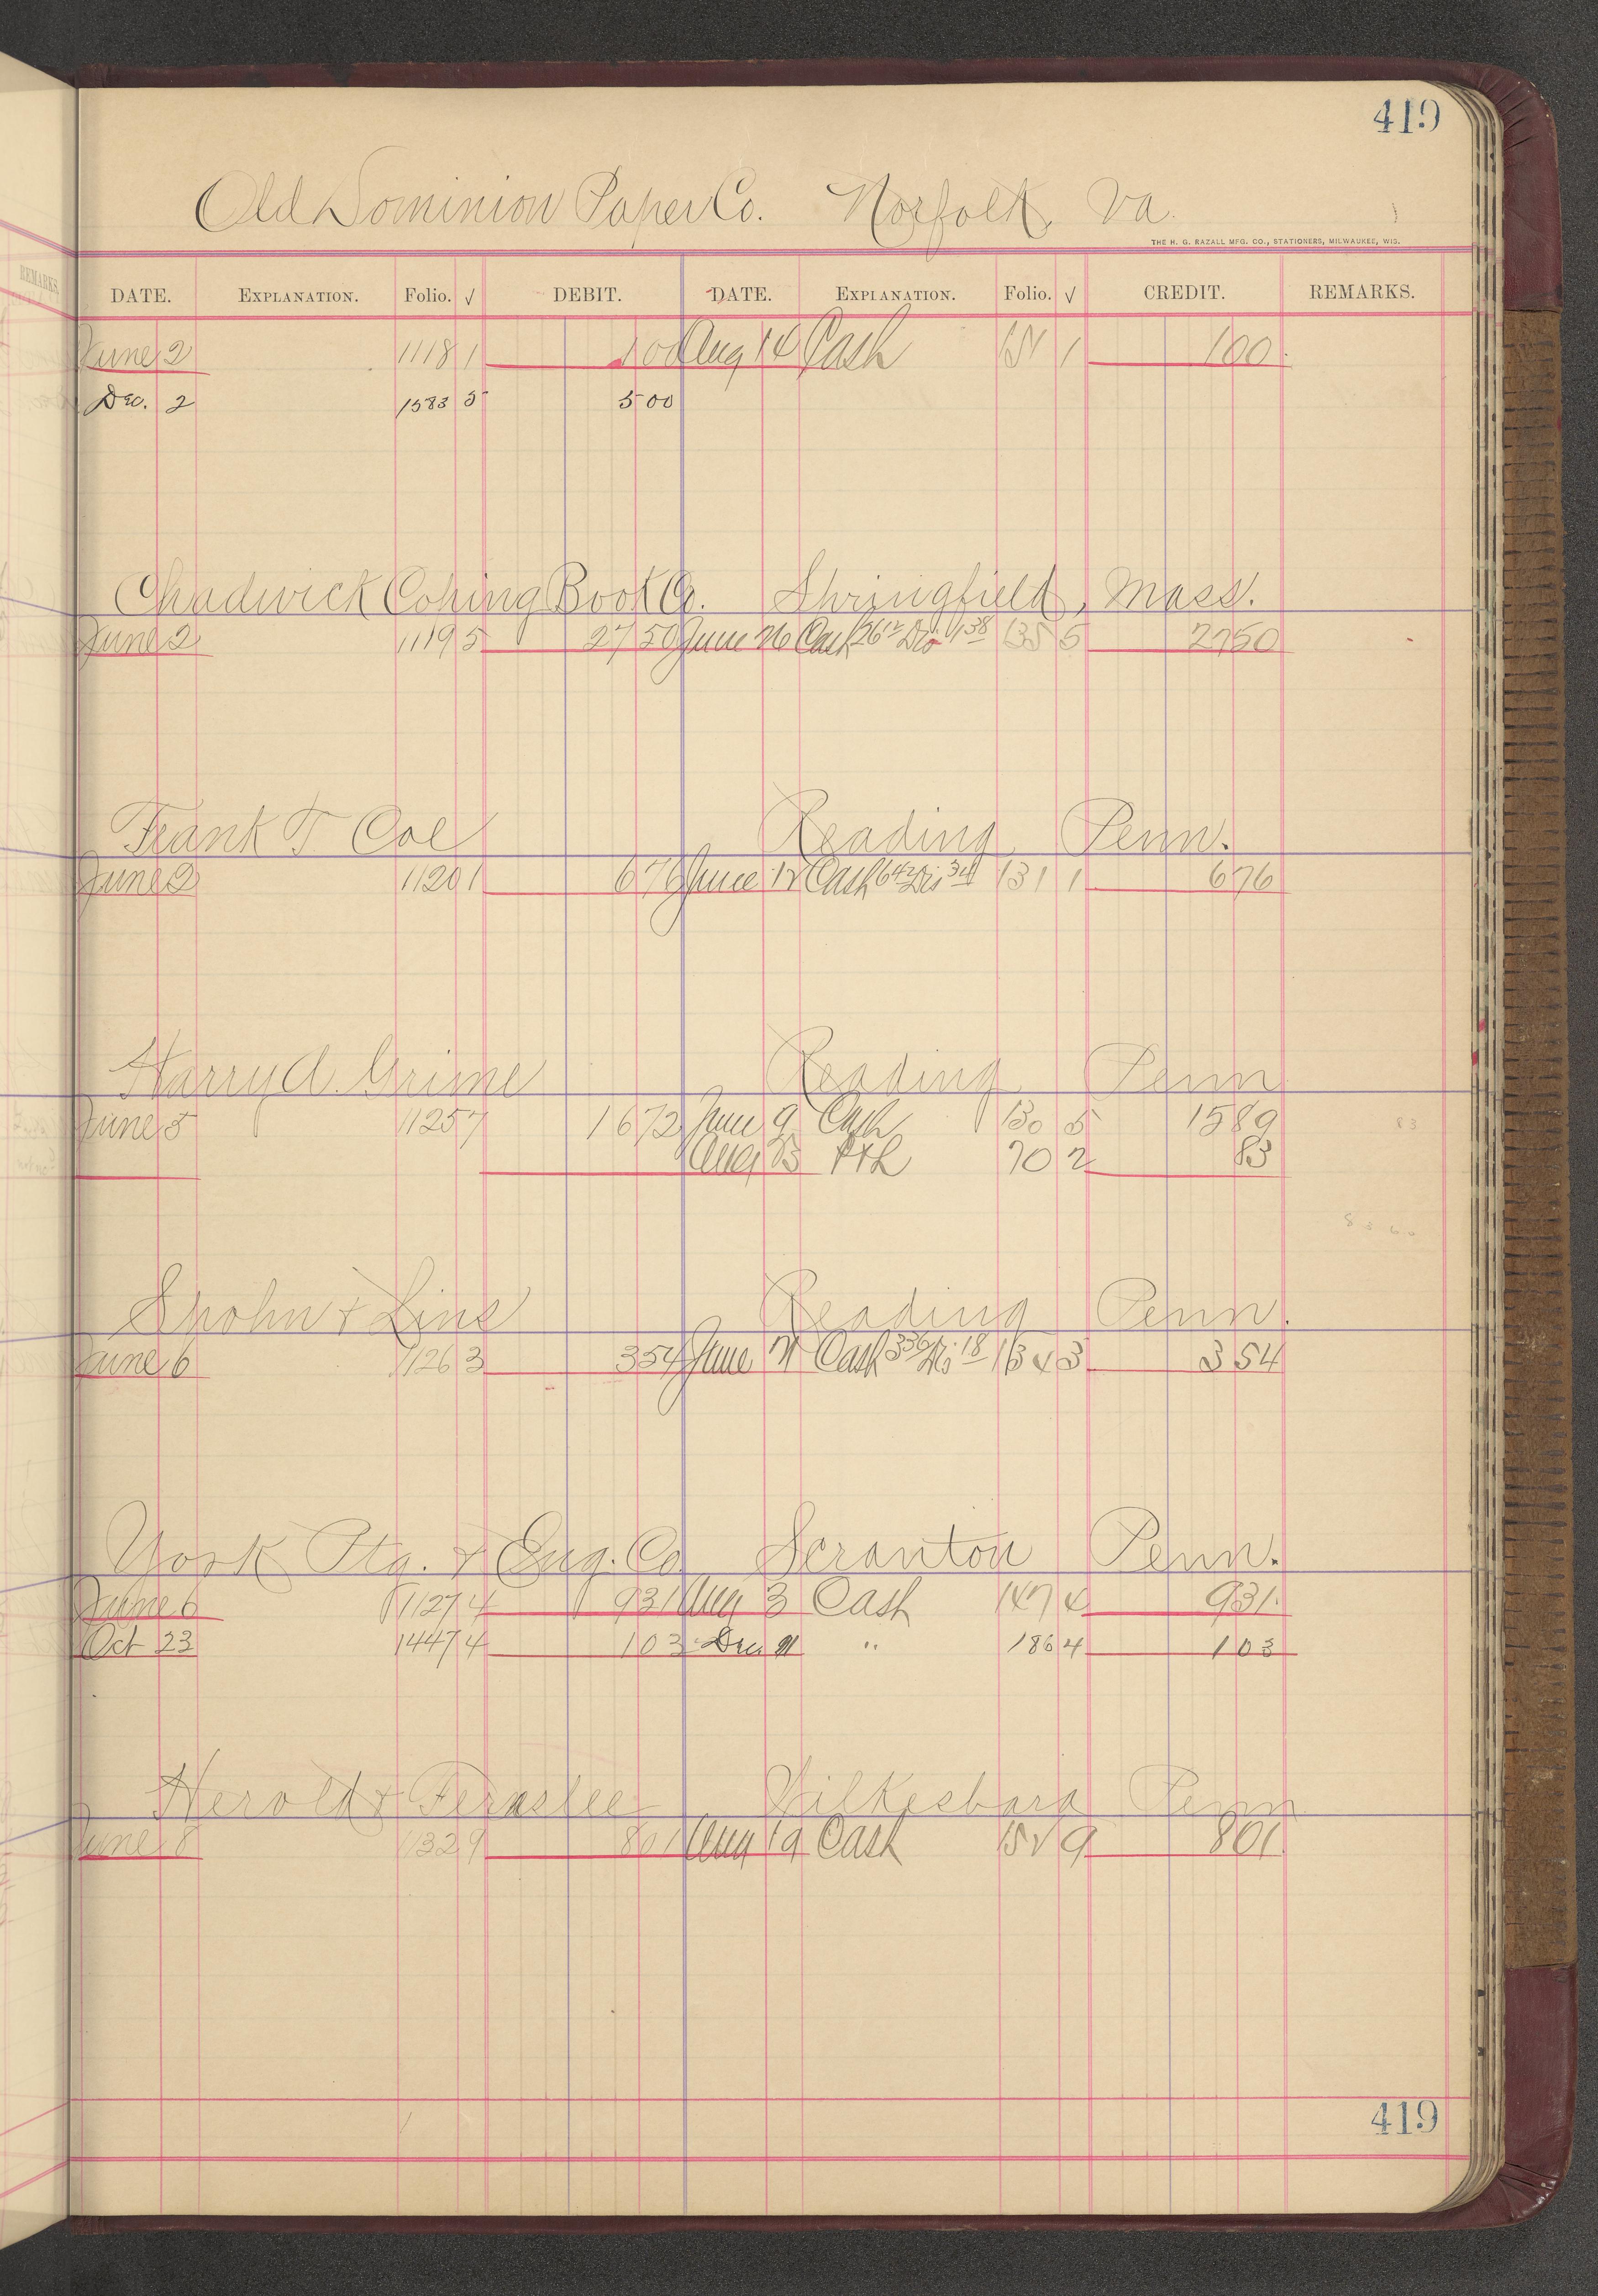 419
Old Dominion Paper Co. Norfolk, Va.
THE H. G. RAZALL MFG. CO., STATIONERS, MILWAUKEE, WIS.
DATE. EXPLANATION. Folio. √ DEBIT. DATE. EXPLANATION. Folio. √ CREDIT. REMARKS.
June 2 1118 1 1 00 Aug 14 Cash 151 1 1 00
Dec. 2 1583 5 5 00
Chadwick Coping Book Co. Springfield, Mass.
June 2 1119 5 27 50 June 26 Cash 26 12 Dis 1 38 135 5 27 50
Frank T Coe Reading Penn.
June 2 1120 1 6 76 June 12 Cash 642 Dis 34 131 1 6 76
Harry A. Grime Reading Penn
June 5 1125 7 16 72 June 9 Cash 130 5 15 89
Aug 25 P&L 70 2 83
83
Spohn & Line Reading Penn.
June 6 1126 3 3 54 June 21 Cash 336 Dis 18 134 3 3 54
York Ptg. & Eng. Co. Scranton Penn.
June 6 1127 4 9 31 Aug 3 Cash 147 4 9 31
Oct 23 1447 4 1 03 Dec 21 " 186 4 1 03
Herold & Fernslee Wilkesbara Penn
June 8 1132 9 8 01 Aug 19 Cash 152 9 8 01
419